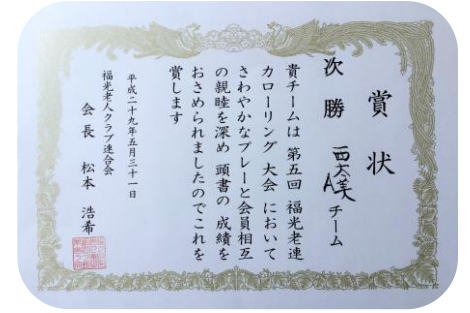 賞状
次勝 西太美A チーム
貴チームは 第五回 福光老連
カローリング 大会 において
さわやかなプレーと会員相互
の親睦を深め 頭書の 成績を
おさめられましたのでこれを
賞します
平成二十九年五月三十一日
福光老人クラブ連合会
会長 松本 浩希